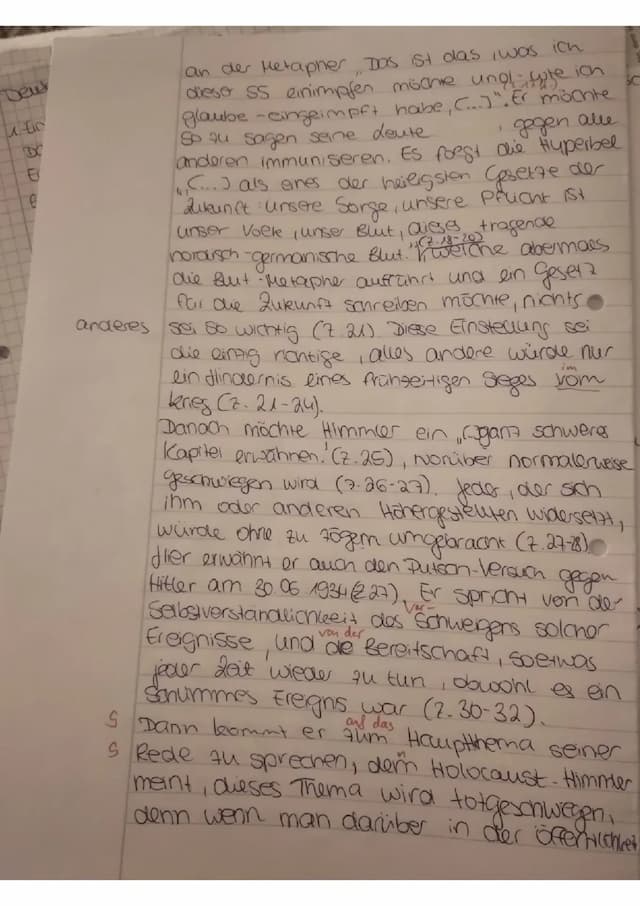 an der Metapher „Das ist das, was ich
dieser SS einimpfen möchte und - wie ich
glaube - eingeimpft habe, (...)". Er möchte
so zu sagen seine Leute , gegen alle
anderen immunisieren. Es folgt die Hyperbel
„(...) als eines der heiligsten Gesetze der
Zukunft: unsere Sorge, unsere Pflicht ist
unser Volk, unser Blut, dieses tragende
nordisch-germanische Blut." (Z. 18-20) welche abermals
die Blut-Metapher aufführt und ein Gesetz
für die Zukunft schreiben möchte, nichts
anderes sei so wichtig (Z. 21). Diese Einstellung sei
die einzig richtige, alles andere würde nur
ein Hindernis eines frühzeitigen Sieges vom im
Krieg (Z. 21-24).
Danach möchte Himmler ein „(-)ganz schweres
Kapitel erwähnen." (Z. 25), worüber normalerweise
geschwiegen wird (Z. 26-27). Jeder, der sich
ihm oder anderen Höhergestellten widersetzt,
würde ohne zu zögern umgebracht (Z. 27-28)
Hier erwähnt er auch den Putsch-Versuch gegen
Hitler am 30.06.1934 (Z. 27). Er spricht von der
Selbstverständlichkeit des Ver- Schweigens solcher
Ereignisse, und von der die Bereitschaft, soetwas
jeder Zeit wieder zu tun, obwohl es ein
schlimmes Ereignis war (Z. 30-32).
S Dann kommt er zum auf das Hauptthema seiner
S Rede zu sprechen, dem n Holocaust. Himmler
meint, dieses Thema wird totgeschwiegen,
denn wenn man darüber in der Öffentlichkeit